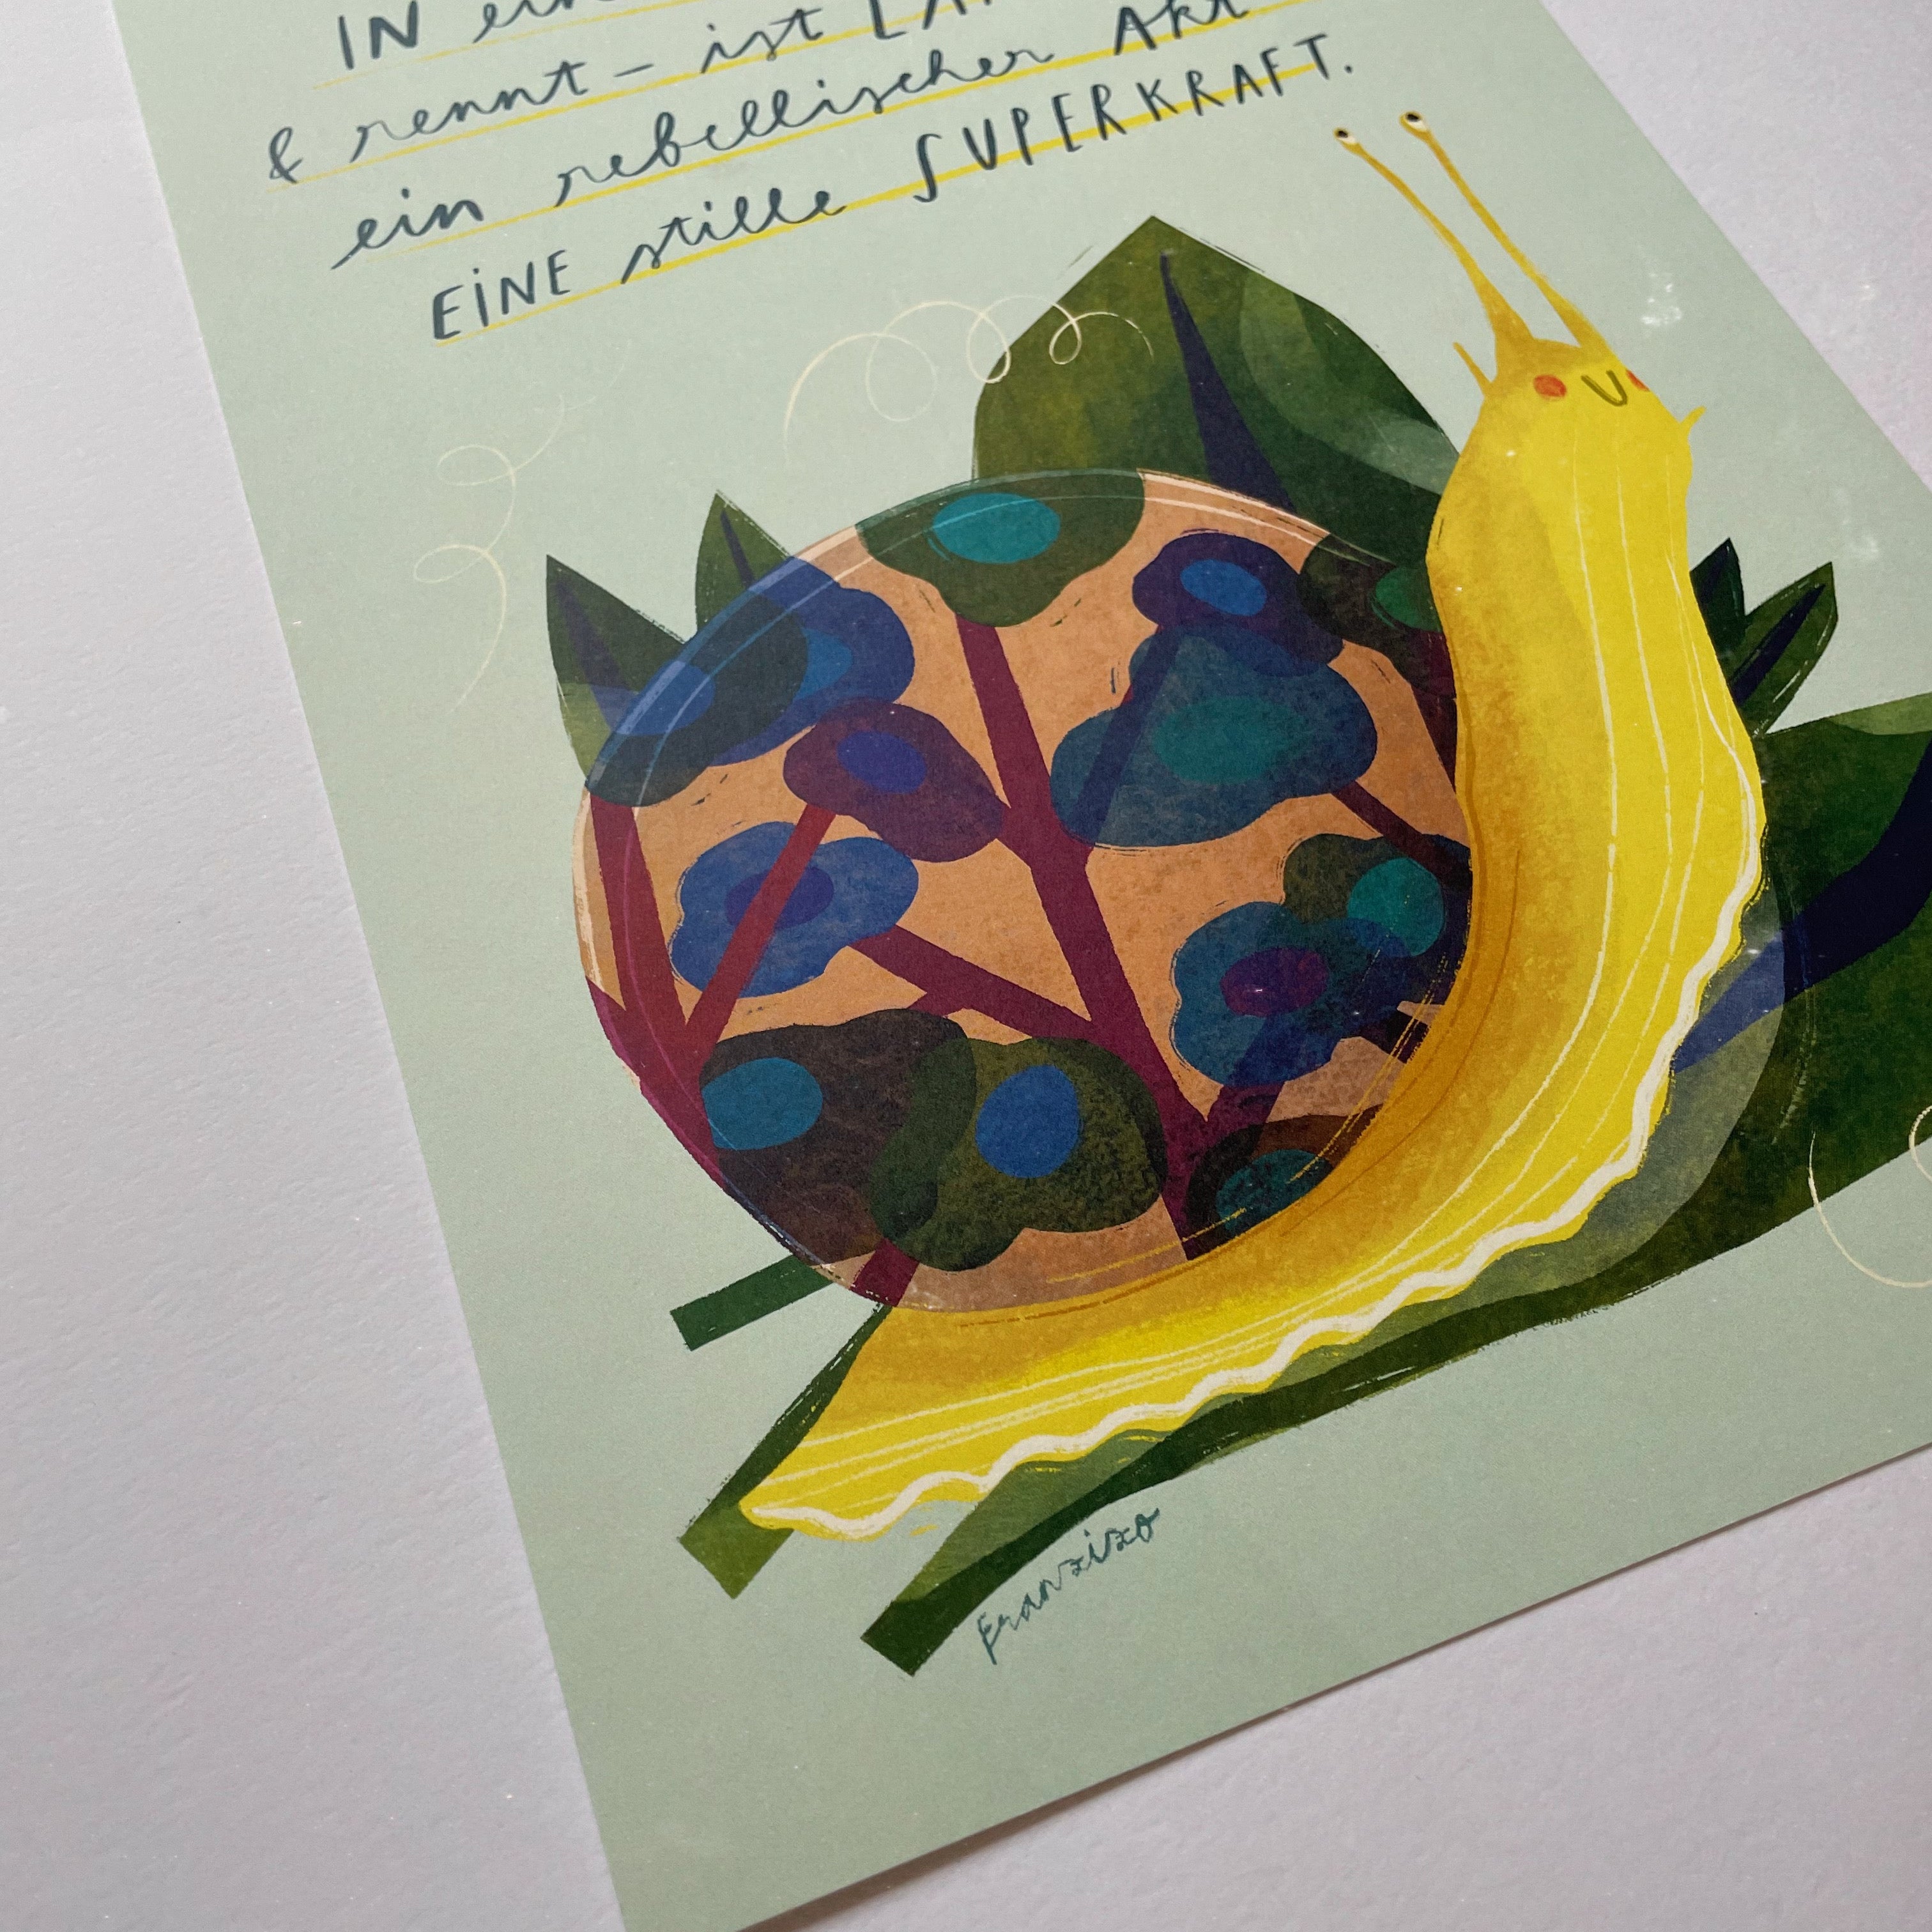 IN
& rennt – ist
ein rebellischer Akt
EINE stille SUPERKRAFT.
Franzizo